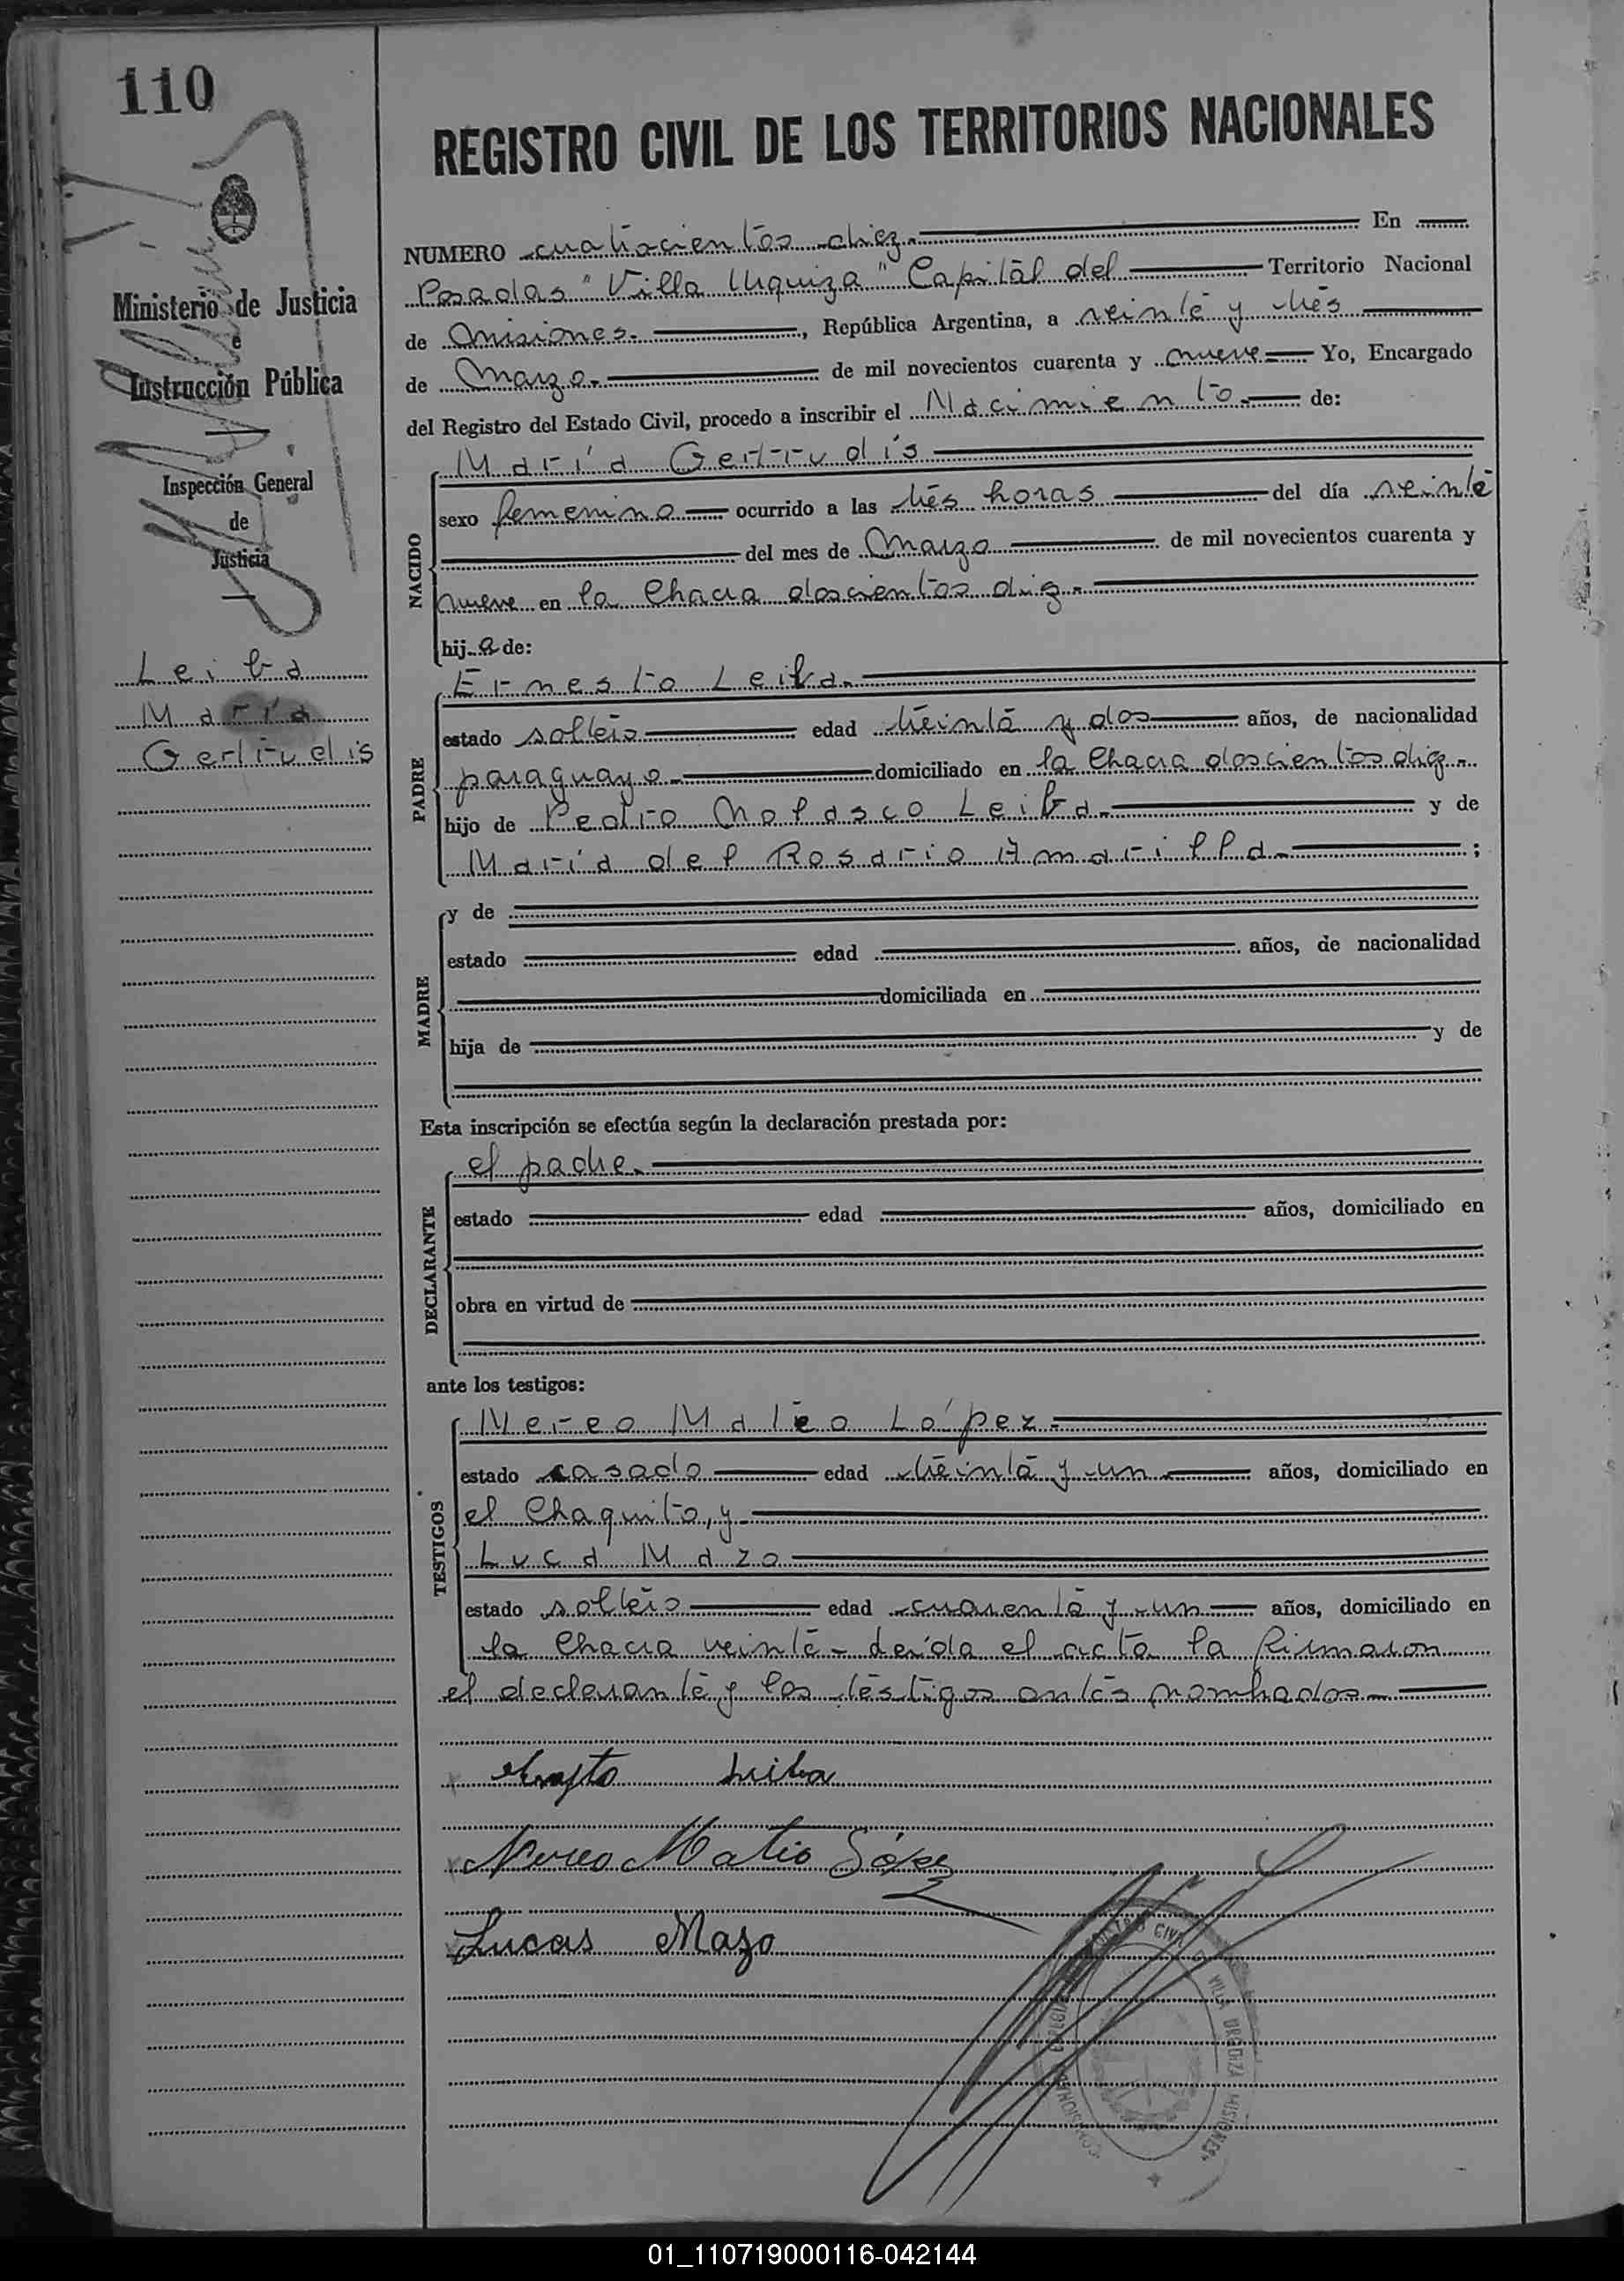 110
REGISTRO CIVIL DE LOS TERRITORIOS NACIONALES
Ministerio de Justicia
e
Instrucción Pública
Inspección General
de
Justicia
Leiba
María
Gertrudis
NUMERO cuatrocientos diez.- En
Posadas "Villa Urquiza" Capital del Territorio Nacional
de Misiones.-, República Argentina, a veinte y tres
de Marzo.- de mil novecientos cuarenta y nueve Yo, Encargado
del Registro del Estado Civil, procedo a inscribir el Nacimiento.- de:
NACIDO
María Gertrudis
sexo femenino ocurrido a las tres horas del día veinte
del mes de Marzo de mil novecientos cuarenta y
nueve en la Chacra doscientos diez.-
hija de:
PADRE
Ernesto Leiba.-
estado soltero edad treinta y dos años, de nacionalidad
paraguayo.- domiciliado en la Chacra doscientos diez.-
hijo de Pedro Nolasco Leiba.- y de
María del Rosario Amarilla.- ;
MADRE
y de
estado edad años, de nacionalidad
domiciliada en
hija de y de
Esta inscripción se efectúa según la declaración prestada por:
DECLARANTE
el padre.-
estado edad años, domiciliado en
obra en virtud de
ante los testigos:
TESTIGOS
Nereo Mateo López.-
estado casado edad treinta y un años, domiciliado en
el Chaquito, y-
Luca Mazo
estado soltero edad cuarenta y un años, domiciliado en
la Chacra veinte- leída el acta la firmaron
el declarante y los testigos antes nombrados.-
Ernesto Leiba
Nereo Mateo López
Lucas Mazo
REGISTRO CIVIL VILLA URQUIZA MISIONES
01_110719000116-042144